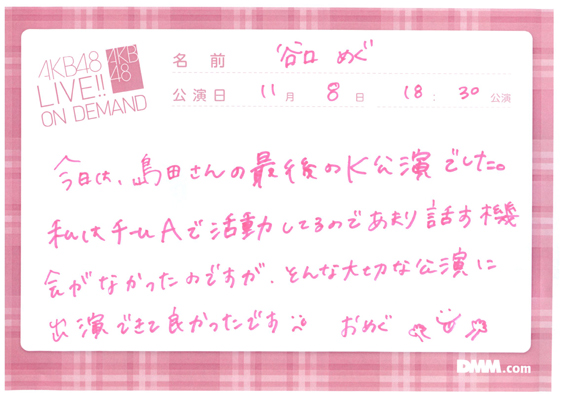 AKB48
LIVE!!
ON DEMAND
AKB
48
名前 谷口 めぐ
公演日 11月 8日 18:30公演
今日は、島田さんの最後のK公演でした。
私はチームAで活動してるのであまり話す機
会がなかったのですが、そんな大切な公演に
出演できて良かったです おめぐ
DMM.com